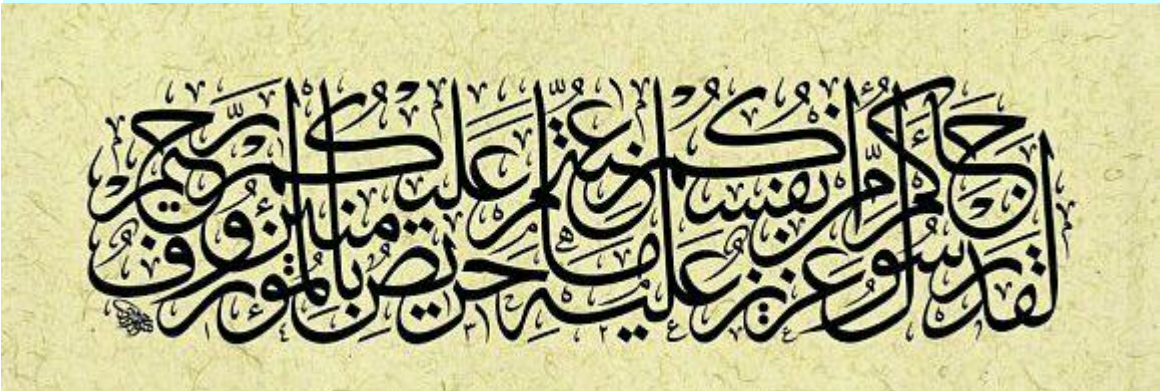 لَقَدْ جَاءَكُمْ رَسُولٌ مِّنْ أَنفُسِكُمْ عَزِيزٌ عَلَيْهِ مَا عَنِتُّمْ حَرِيصٌ عَلَيْكُم بِالْمُؤْمِنِينَ رَءُوفٌ رَّحِيمٌ